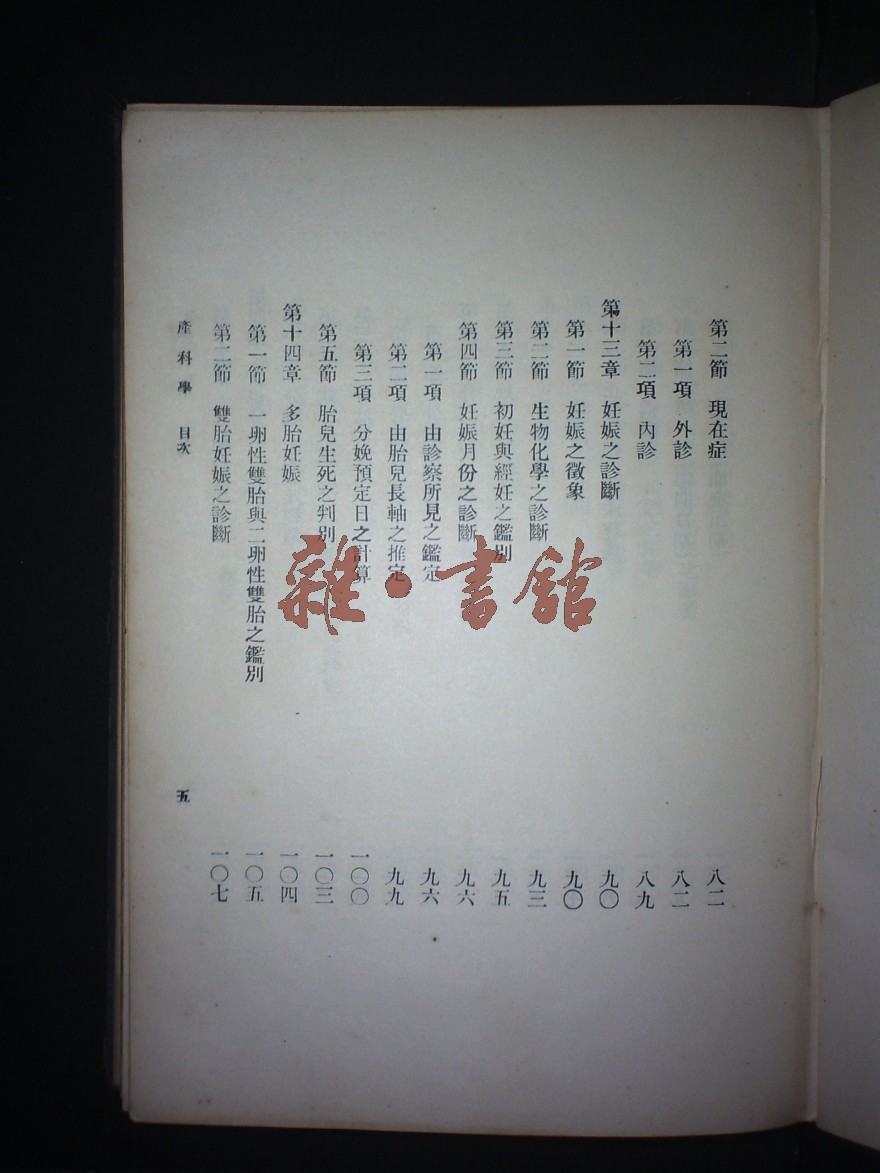 第二節 現在症 八二
第一項 外診 八二
第二項 內診 八九
第十三章 妊娠之診斷 九〇
第一節 妊娠之徵象 九〇
第二節 生物化學之診斷 九三
第三節 初妊與經妊之鑑別 九五
第四節 妊娠月份之診斷 九六
第一項 由診察所見之鑑定 九六
第二項 由胎兒長軸之推定 九九
第三項 分娩預定日之計算 一〇〇
第五節 胎兒生死之判別 一〇三
第十四章 多胎妊娠 一〇四
第一節 一卵性雙胎與二卵性雙胎之鑑別 一〇五
第二節 雙胎妊娠之診斷 一〇七
產科學 目次 五
雜·書館